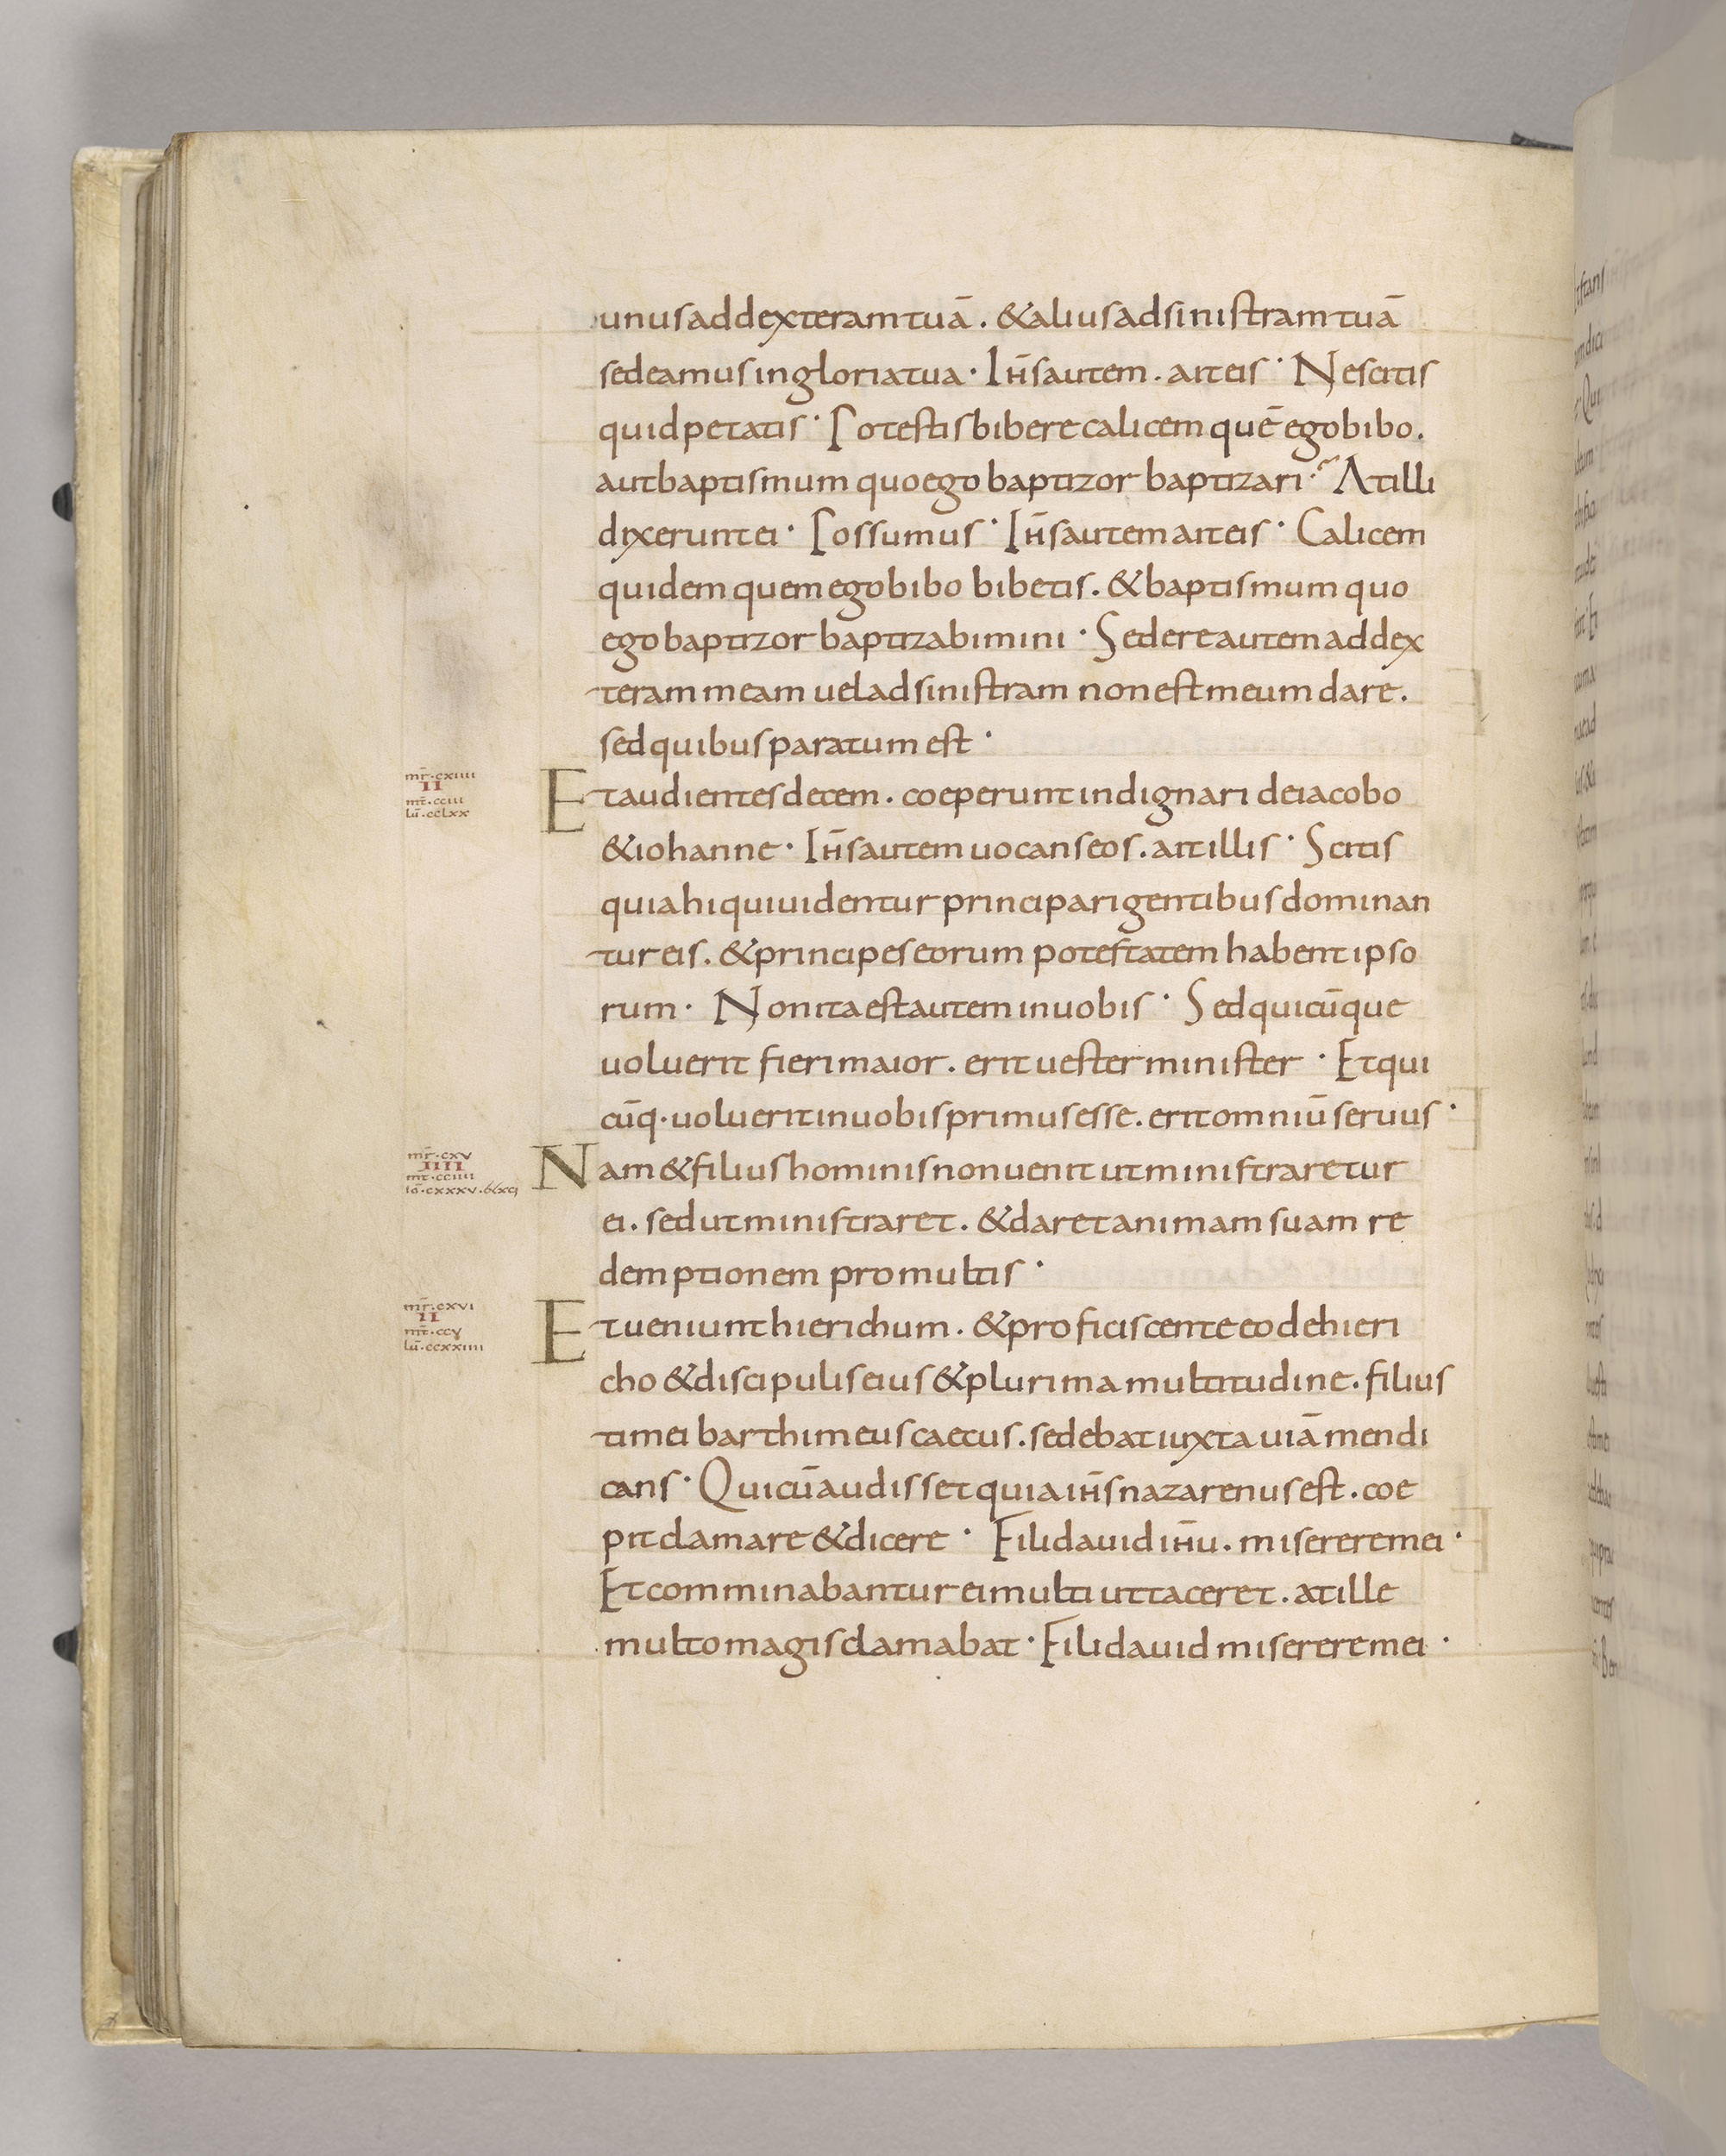 unus ad dexteram tuā. & alius ad sinistram tuā
sedeamus in gloria tua· Ih̄s autem. ait eis· Nescitis
quid petatis· Potestis bibere calicem quē ego bibo.
aut baptismum quo ego baptizor baptizari· At illi
dixerunt ei· Possumus· Ih̄s autem ait eis· Calicem
quidem quem ego bibo bibetis. & baptismum quo
ego baptizor baptizabimini· Sedere autem ad dex
teram meam uel ad sinistram non est meum dare.
sed quibus paratum est·
mr̄·cxiiii
II
mt̄·cciii
lu̅·cclxx
Et audientes decem. coeperunt indignari de iacobo
& iohanne· Ih̄s autem uocans eos. ait illis· Scitis
quia hi qui uidentur principari gentibus dominan
tur eis. & principes eorum potestatem habent ipso
rum· Non ita est autem in uobis· Sed quicūque
uoluerit fieri maior. erit uester minister· Et qui
cūq· uoluerit in uobis primus esse. erit omniū seruus·
mr̄·cxv
IIII
mt̄·cciiii
Nam & filius hominis non uenit ut ministraretur
ei. sed ut ministraret. & daret animam suam re
demptionem pro multis·
mr̄·cxvi
II
mt̄·ccv
lu̅·ccxxiiii
Et ueniunt hierichum. & proficiscente eo de hieri
cho & discipulis eius & plurima multitudine. filius
timei barthimeus caecus. sedebat iuxta uiā mendi
cans· Qui cū audisset quia ih̄s nazarenus est. coe
pit clamare & dicere· Fili dauid ih̄u. miserere mei·
Et comminabantur ei multi ut taceret. at ille
multo magis clamabat· Fili dauid miserere mei·